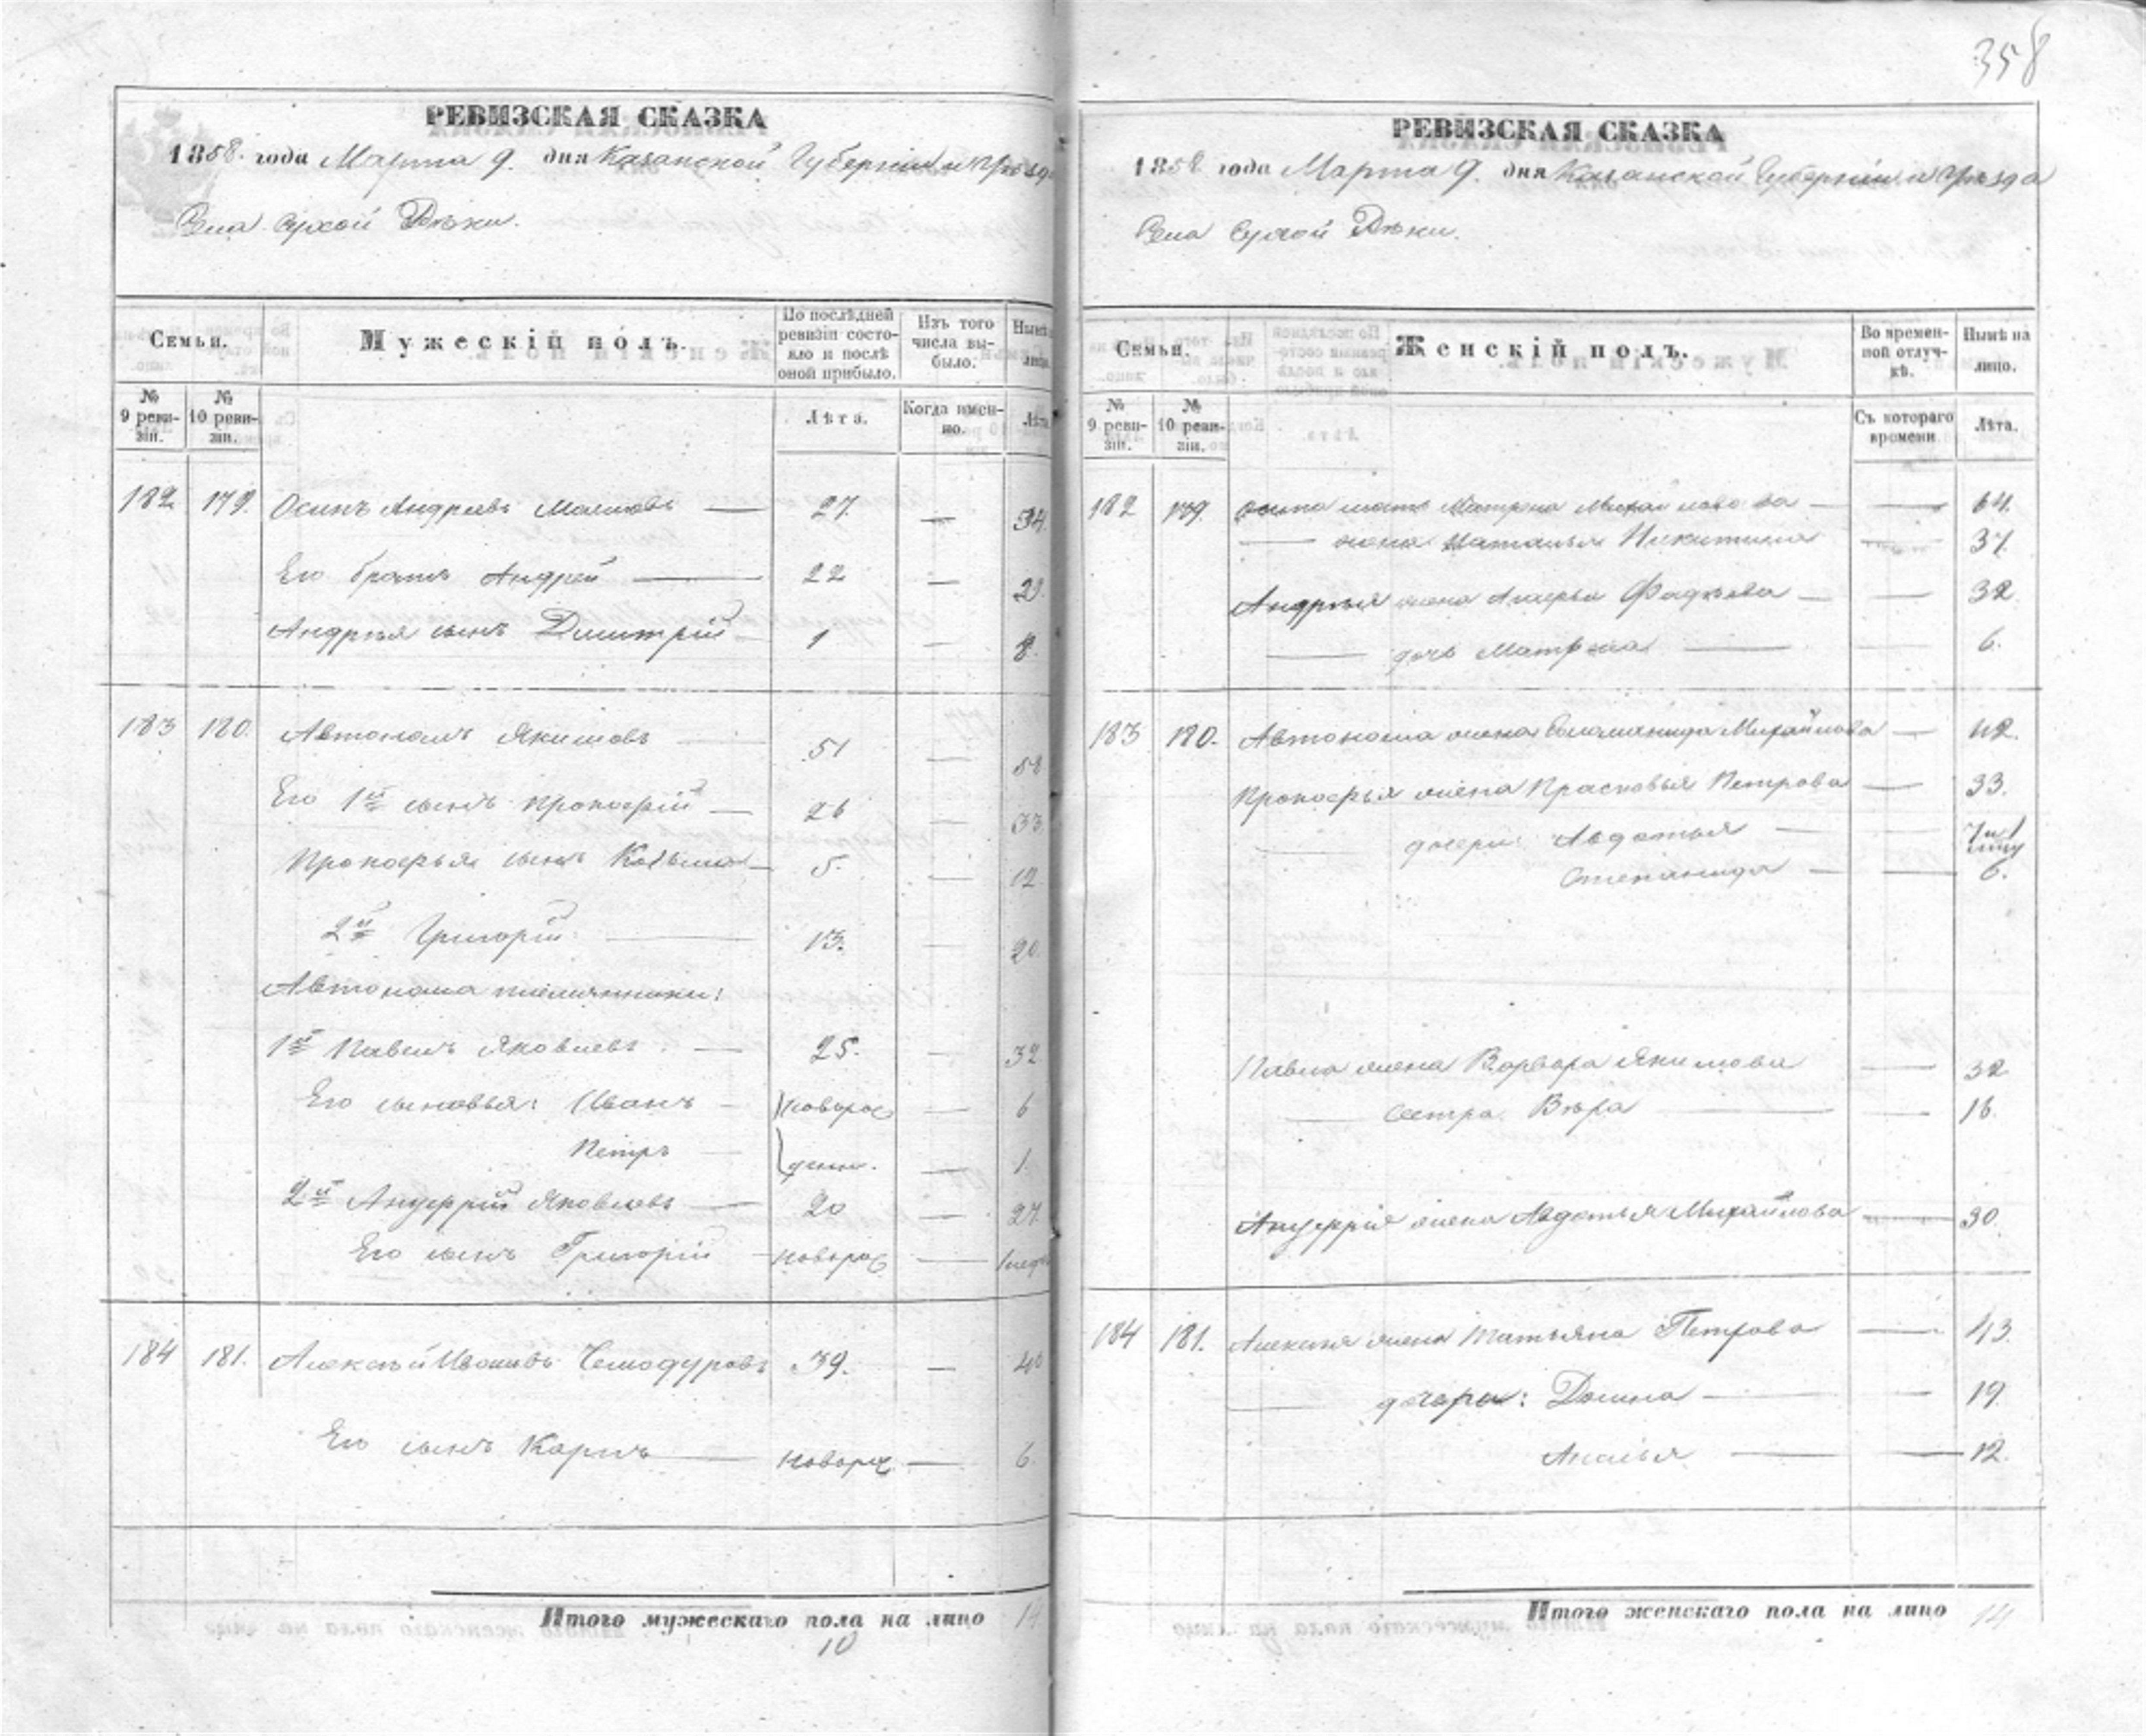 358
РЕВИЗСКАЯ СКАЗКА
1858. года Марта 9. дня Казанской Губерніи и Уѣзда
Села Сухой Рѣки.
Семьи.
Мужескій полъ.
По послѣдней ревизіи состояло и послѣ оной прибыло.
Изъ того числа выбыло.
Нынѣ лицо.
№ 9 ревизіи.
№ 10 ревизіи.
Лѣта.
Когда именно.
Лѣта.
182 179. Осипъ Андреевъ — 27. — 34.
Его братъ Андрей — 22 — 29.
Андрея сынъ Дмитрій — 1 8.
183 180. Автономъ Якимовъ — 51 — 58
Его 1й сынъ Прокофій — 26 — 33.
Прокофья сынъ Козьма — 5. — 12
2й Григорій — 13. — 20.
Автонома племянники:
1й Павелъ Яковлевъ. — 25. — 32
Его сыновья: Иванъ — новорож — 6
Петръ — денн. — 1.
2й Яковлевъ — 20 — 27.
Его сынъ Григорій — новорож —
184 181. Алексѣй Ивановъ Чемодуровъ 39. — 46
Его сынъ Карпъ — новорож. — 6.
Итого мужескаго пола на лицо 14
10
РЕВИЗСКАЯ СКАЗКА
1858 года Марта 9. дня Казанской Губерніи и Уѣзда
Села Сухой Рѣки.
Семьи.
Женскій полъ.
Во временной отлучкѣ.
Нынѣ на лицо.
№ 9 ревизіи.
№ 10 ревизіи.
Съ котораго времени
Лѣта.
182 179. мать Матрена Михайлова — — 64.
— жена Наталья Никитина — 37.
Андрея жена Фадѣева — — 32
— дочь Матрена — — 6.
183 180. Автонома жена Михайлова — 42.
Прокофья жена Прасковья Петрова — 33.
— дочери: Авдотья —
Степанида — — 6.
Павла жена Варвара Якимова — 32
— сестра Вѣра — — 16.
жена Авдотья Михайлова — 30.
184 181. Алексѣя жена Татьяна Петрова — 43.
— дочери: Домна — — 19.
— — 12.
Итого женскаго пола на лицо 14